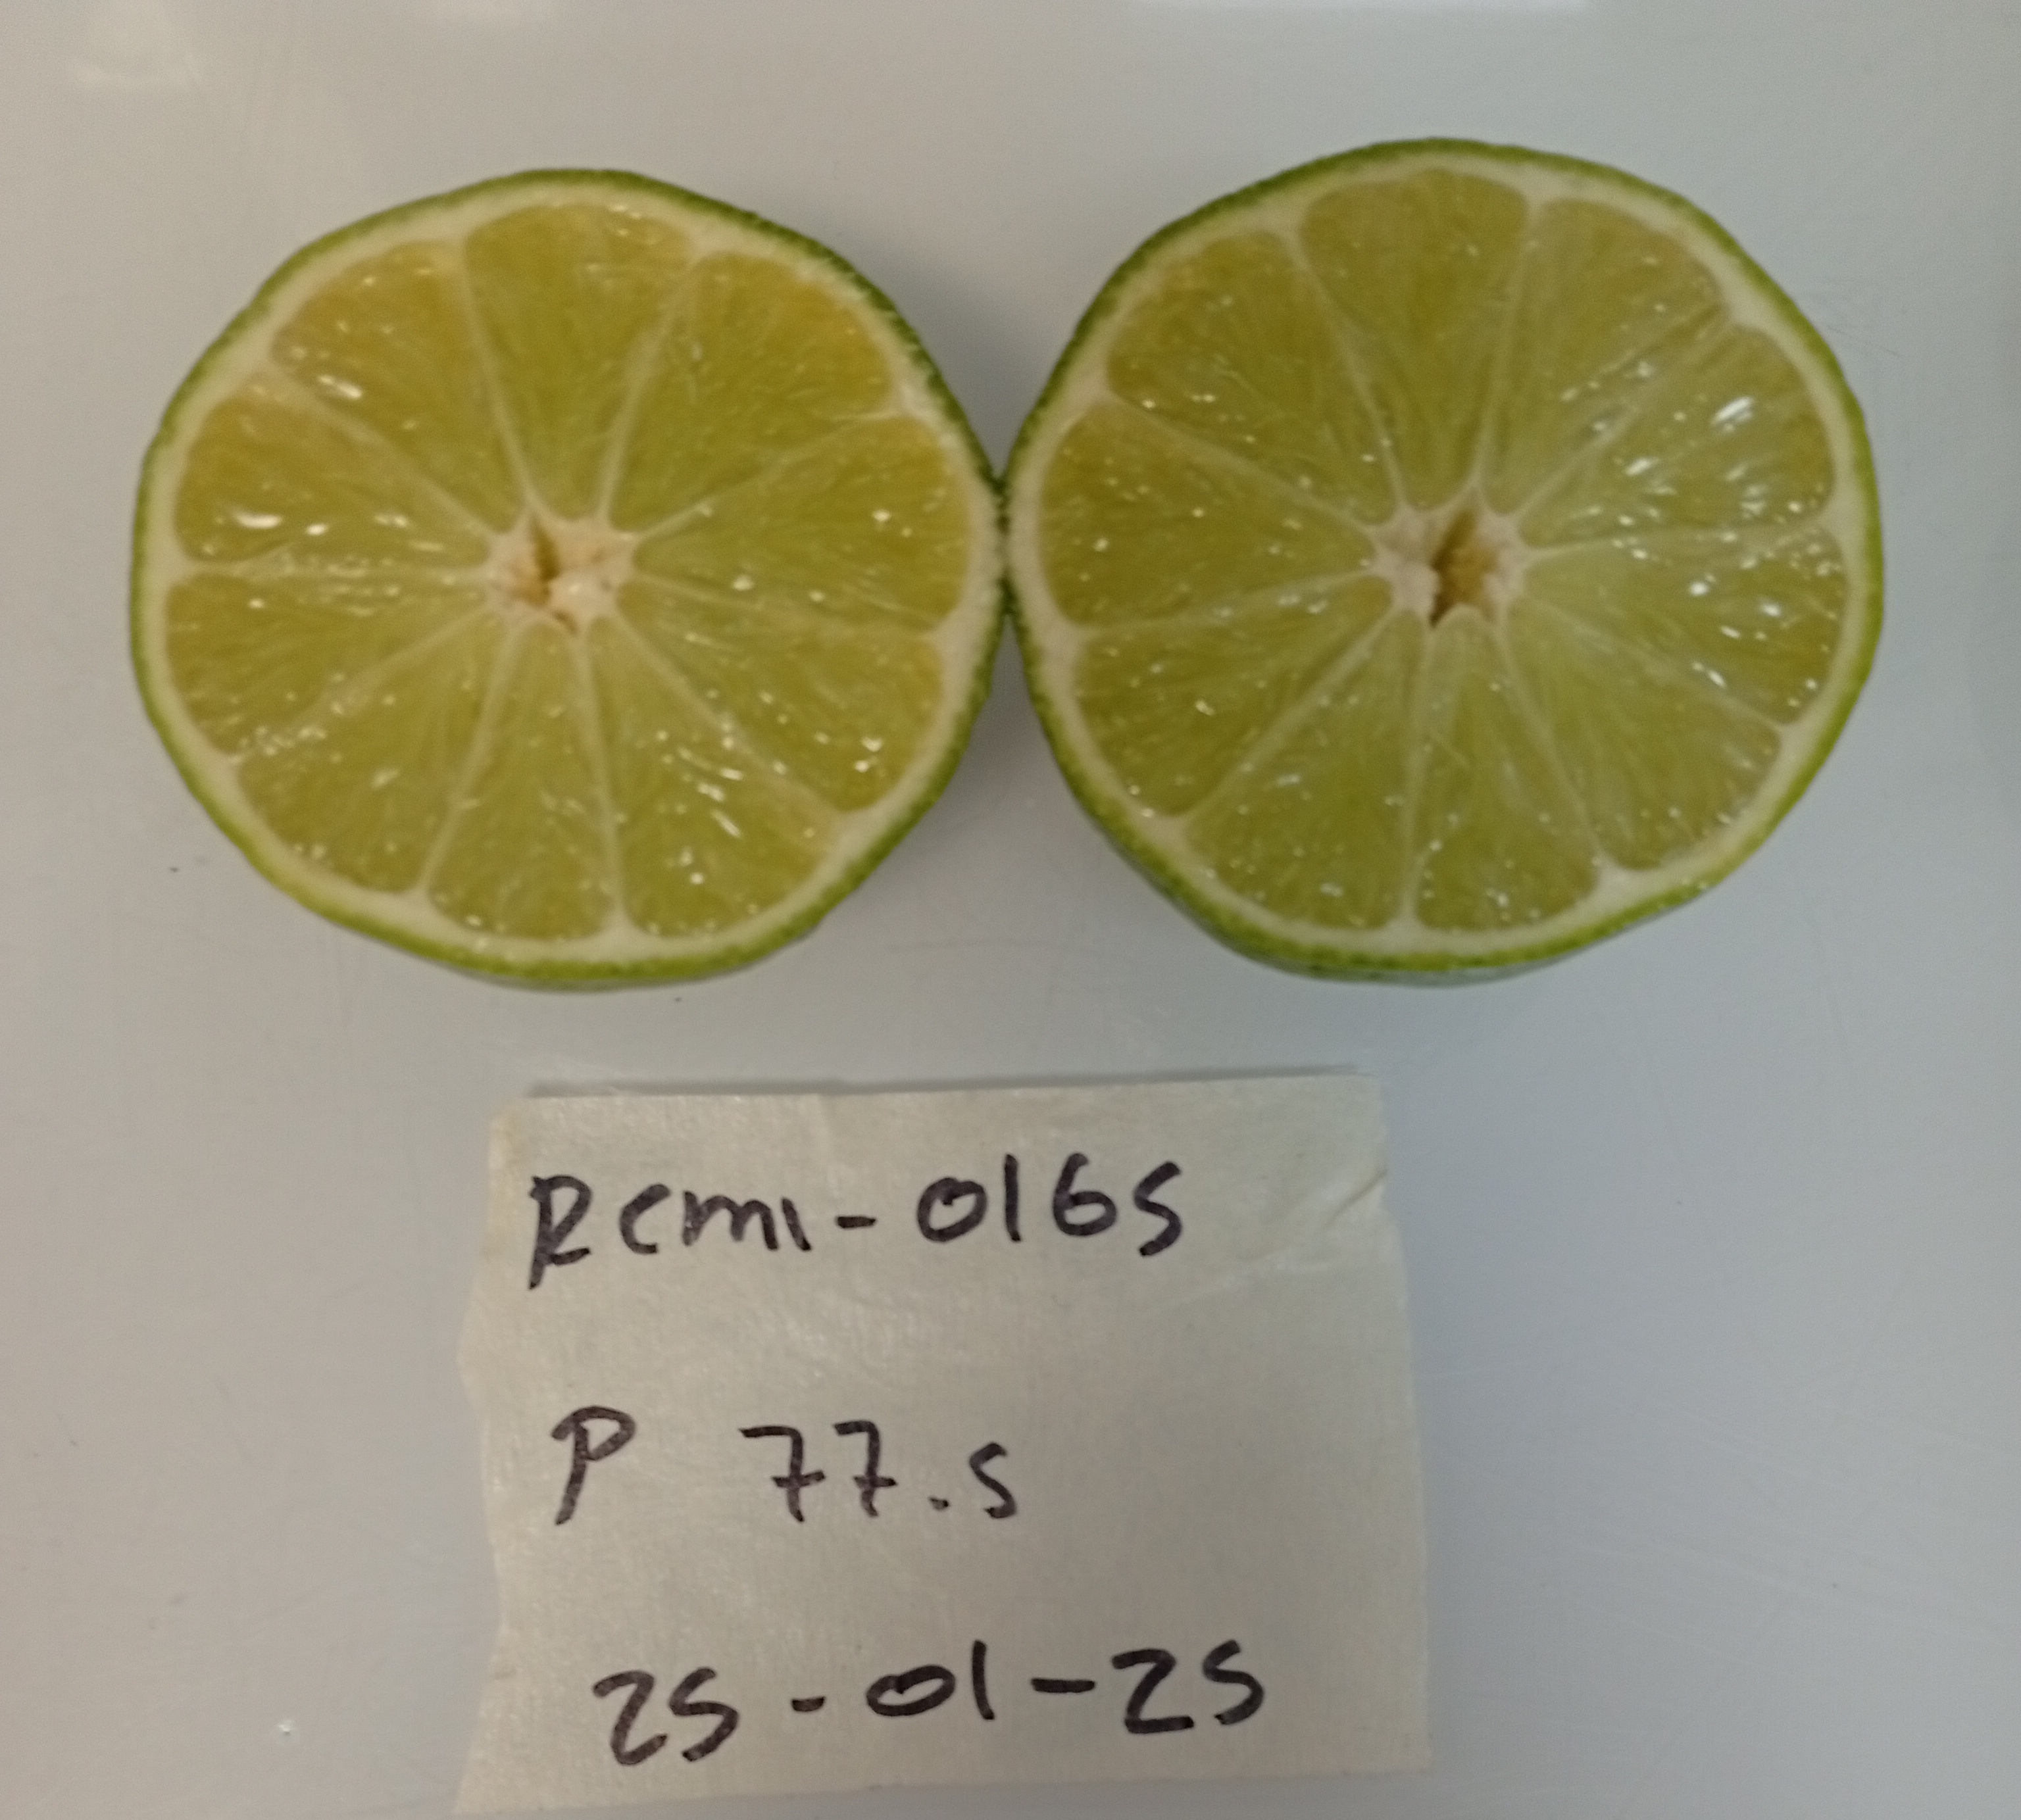 Rcmi-0165
P 77.5
25-01-25